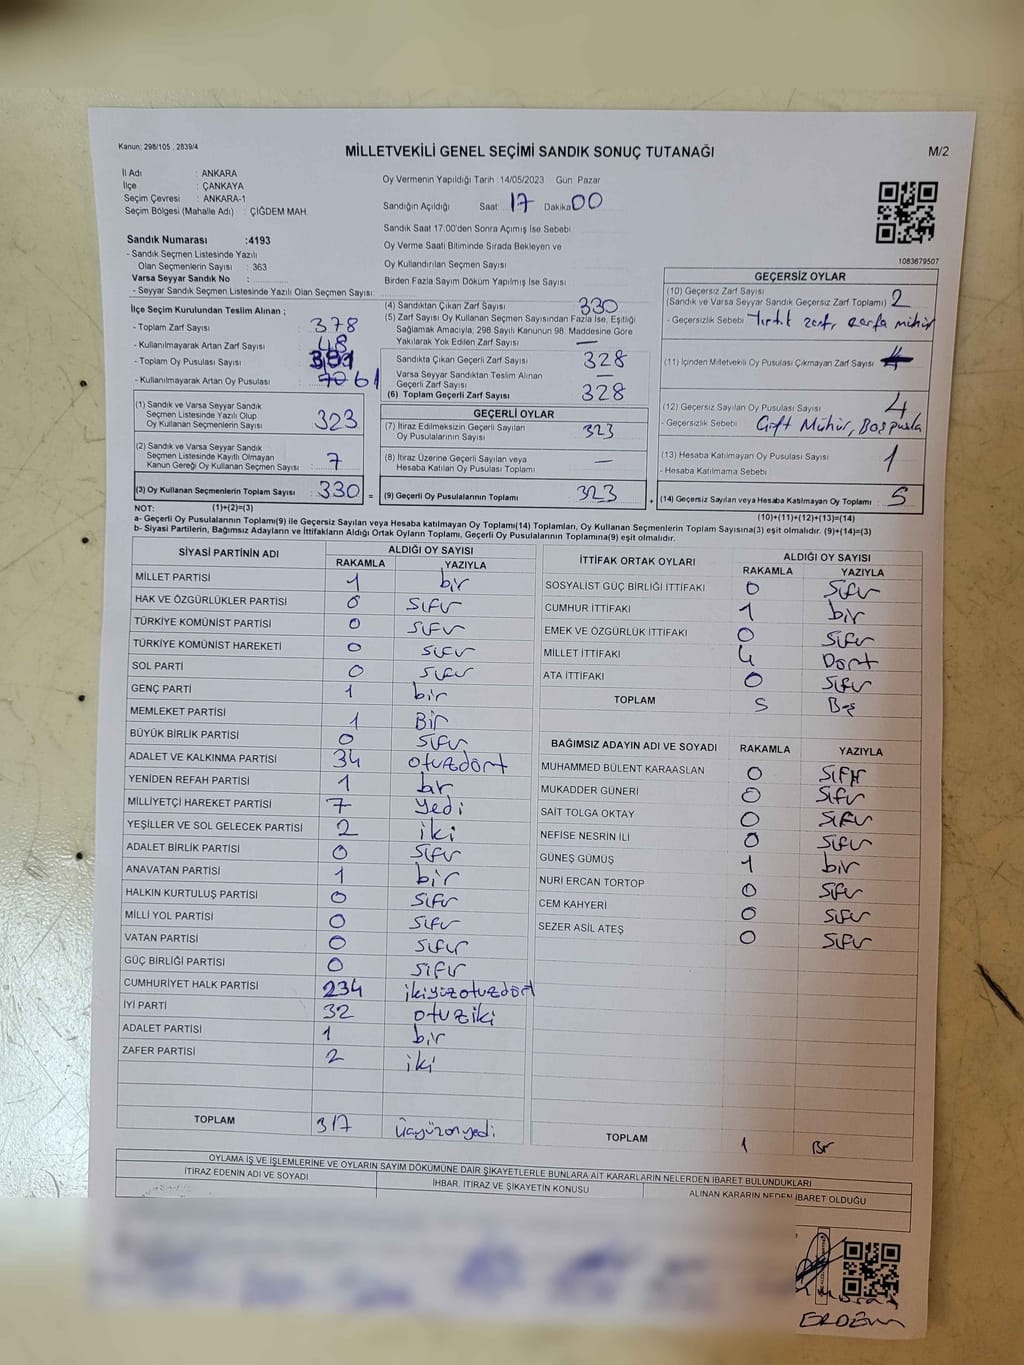 Kanun; 298/105 , 2839/4
MİLLETVEKİLİ GENEL SEÇİMİ SANDIK SONUÇ TUTANAĞI
M/2
İl Adı : ANKARA
İlçe : ÇANKAYA
Seçim Çevresi : ANKARA-1
Seçim Bölgesi (Mahalle Adı) : ÇİĞDEM MAH.
Sandık Numarası :4193
- Sandık Seçmen Listesinde Yazılı
Olan Seçmenlerin Sayısı : 363
Varsa Seyyar Sandık No :
- Seyyar Sandık Seçmen Listesinde Yazılı Olan Seçmen Sayısı:
Oy Vermenin Yapıldığı Tarih :14/05/2023 Gün: Pazar
Sandığın Açıldığı Saat: 17 Dakika 00
Sandık Saat 17:00'den Sonra Açımış İse Sebebi
Oy Verme Saati Bitiminde Sırada Bekleyen ve
Oy Kullandırılan Seçmen Sayısı
Birden Fazla Sayım Döküm Yapılmış İse Sayısı
1083679507
İlçe Seçim Kurulundan Teslim Alınan ;
- Toplam Zarf Sayısı : 378
- Kullanılmayarak Artan Zarf Sayısı : 48
- Toplam Oy Pusulası Sayısı :
- Kullanılmayarak Artan Oy Pusulası : 61
(1) Sandık ve Varsa Seyyar Sandık
Seçmen Listesinde Yazılı Olup
Oy Kullanan Seçmenlerin Sayısı : 323
(2) Sandık ve Varsa Seyyar Sandık
Seçmen Listesinde Kayıtlı Olmayan
Kanun Gereği Oy Kullanan Seçmen Sayısı : 7
(3) Oy Kullanan Seçmenlerin Toplam Sayısı : 330 =
(1)+(2)=(3)
(4) Sandıktan Çıkan Zarf Sayısı 330
(5) Zarf Sayısı Oy Kullanan Seçmen Sayısından Fazla İse, Eşitliği
Sağlamak Amacıyla; 298 Sayılı Kanunun 98. Maddesine Göre
Yakılarak Yok Edilen Zarf Sayısı : —
Sandıkta Çıkan Geçerli Zarf Sayısı : 328
Varsa Seyyar Sandıktan Teslim Alınan
Geçerli Zarf Sayısı : —
(6) Toplam Geçerli Zarf Sayısı : 328
GEÇERLİ OYLAR
(7) İtiraz Edilmeksizin Geçerli Sayılan
Oy Pusulalarının Sayısı : 323
(8) İtiraz Üzerine Geçerli Sayılan veya
Hesaba Katılan Oy Pusulası Toplamı : —
(9) Geçerli Oy Pusulalarının Toplamı : 323 +
GEÇERSİZ OYLAR
(10) Geçersiz Zarf Sayısı
(Sandık ve Varsa Seyyar Sandık Geçersiz Zarf Toplamı) : 2
- Geçersizlik Sebebi : Yırtık zarf, zarfa mühür
(11) İçinden Milletvekili Oy Pusulası Çıkmayan Zarf Sayısı :
(12) Geçersiz Sayılan Oy Pusulası Sayısı : 4
- Geçersizlik Sebebi : Çift Mühür, Boş pusula
(13) Hesaba Katılmayan Oy Pusulası Sayısı : 1
- Hesaba Katılmama Sebebi :
(14) Geçersiz Sayılan veya Hesaba Katılmayan Oy Toplamı : 5
(10)+(11)+(12)+(13)=(14)
NOT:
a- Geçerli Oy Pusulalarının Toplamı(9) ile Geçersiz Sayılan veya Hesaba katılmayan Oy Toplamı(14) Toplamları, Oy Kullanan Seçmenlerin Toplam Sayısına(3) eşit olmalıdır. (9)+(14)=(3)
b- Siyasi Partilerin, Bağımsız Adayların ve İttifakların Aldığı Ortak Oyların Toplamı, Geçerli Oy Pusulalarının Toplamına(9) eşit olmalıdır.
SİYASİ PARTİNİN ADI ALDIĞI OY SAYISI
RAKAMLA YAZIYLA
MİLLET PARTİSİ 1 bir
HAK VE ÖZGÜRLÜKLER PARTİSİ 0 Sıfır
TÜRKİYE KOMÜNİST PARTİSİ 0 Sıfır
TÜRKİYE KOMÜNİST HAREKETİ 0 Sıfır
SOL PARTİ 0 Sıfır
GENÇ PARTİ 1 bir
MEMLEKET PARTİSİ 1 Bir
BÜYÜK BİRLİK PARTİSİ 0 Sıfır
ADALET VE KALKINMA PARTİSİ 34 otuzdört
YENİDEN REFAH PARTİSİ 1 bir
MİLLİYETÇİ HAREKET PARTİSİ 7 yedi
YEŞİLLER VE SOL GELECEK PARTİSİ 2 iki
ADALET BİRLİK PARTİSİ 0 Sıfır
ANAVATAN PARTİSİ 1 bir
HALKIN KURTULUŞ PARTİSİ 0 Sıfır
MİLLİ YOL PARTİSİ 0 Sıfır
VATAN PARTİSİ 0 Sıfır
GÜÇ BİRLİĞİ PARTİSİ 0 Sıfır
CUMHURİYET HALK PARTİSİ 234 ikiyüzotuzdört
İYİ PARTİ 32 otuziki
ADALET PARTİSİ 1 bir
ZAFER PARTİSİ 2 iki
TOPLAM 317 üçyüzonyedi
İTTİFAK ORTAK OYLARI ALDIĞI OY SAYISI
RAKAMLA YAZIYLA
SOSYALİST GÜÇ BİRLİĞİ İTTİFAKI 0 Sıfır
CUMHUR İTTİFAKI 1 bir
EMEK VE ÖZGÜRLÜK İTTİFAKI 0 Sıfır
MİLLET İTTİFAKI 4 Dört
ATA İTTİFAKI 0 Sıfır
TOPLAM 5 Beş
BAĞIMSIZ ADAYIN ADI VE SOYADI RAKAMLA YAZIYLA
MUHAMMED BÜLENT KARAASLAN 0 Sıfır
MUKADDER GÜNERİ 0 Sıfır
SAİT TOLGA OKTAY 0 Sıfır
NEFİSE NESRİN İLİ 0 Sıfır
GÜNEŞ GÜMÜŞ 1 bir
NURİ ERCAN TORTOP 0 Sıfır
CEM KAHYERİ 0 Sıfır
SEZER ASİL ATEŞ 0 Sıfır
TOPLAM 1 Bir
OYLAMA İŞ VE İŞLEMLERİNE VE OYLARIN SAYIM DÖKÜMÜNE DAİR ŞİKAYETLERLE BUNLARA AİT KARARLARIN NELERDEN İBARET BULUNDUKLARI
İTİRAZ EDENİN ADI VE SOYADI İHBAR, İTİRAZ VE ŞİKAYETİN KONUSU ALINAN KARARIN NEDEN İBARET OLDUĞU
ERDEM